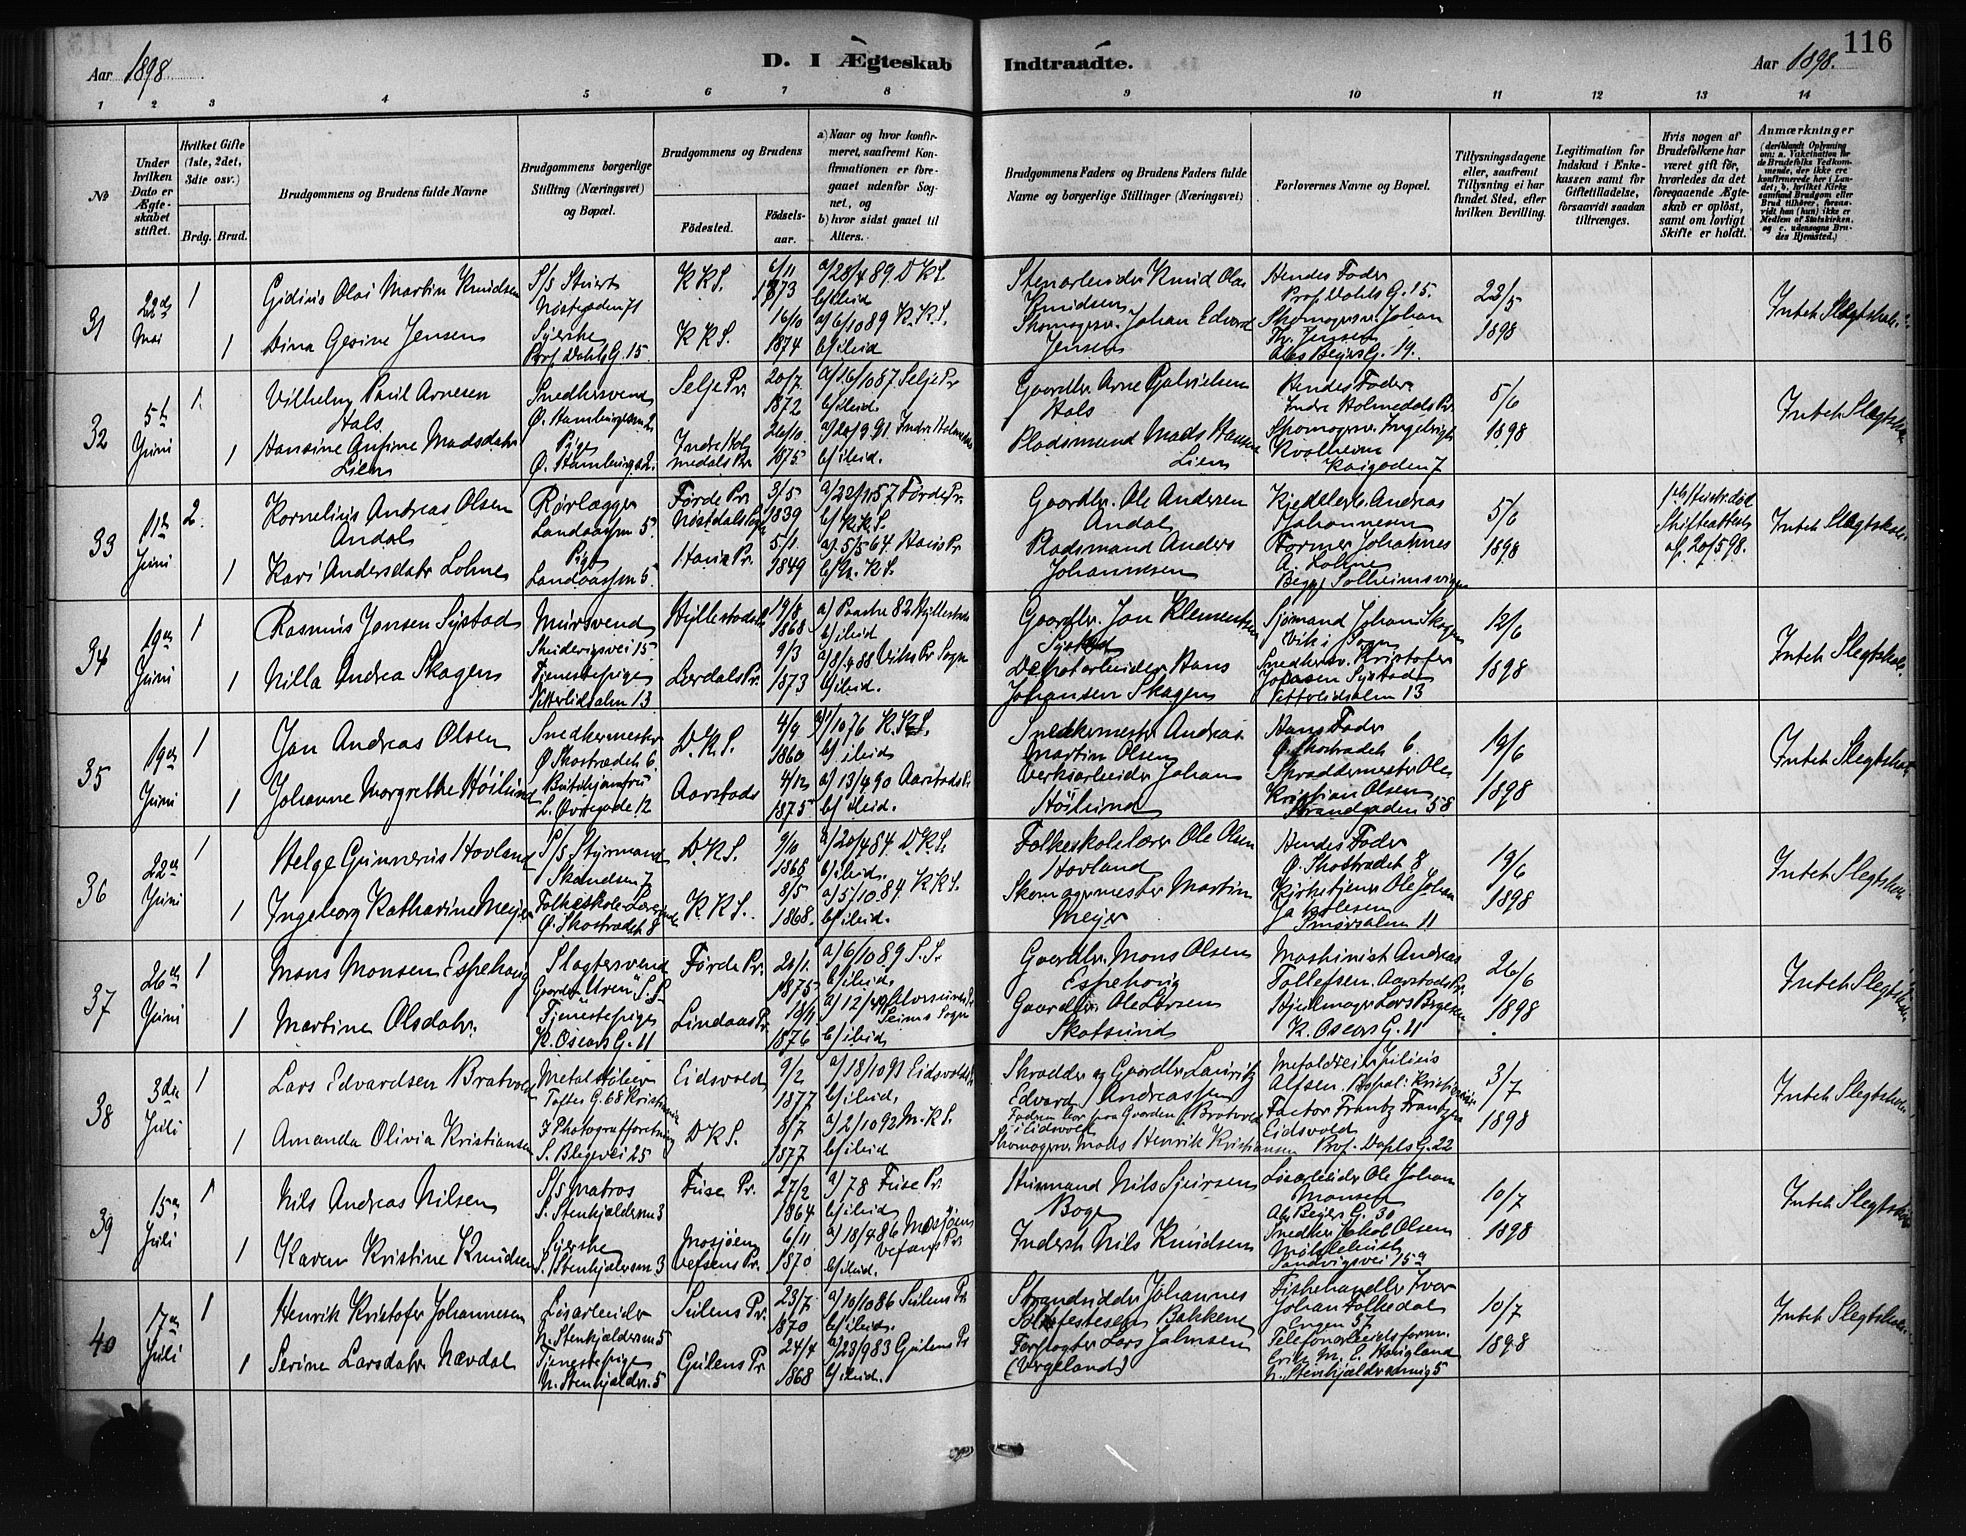 116
Aar 1898.
D. I Ægteskab Indtraadte.
Aar 1898.
1 2 3 4 5 6 7 8 9 10 11 12 13 14
№
Under hvilken Dato er Ægteskabet stiftet.
Hvilket Gifte (1ste, 2det, 3die osv.)
Brdg. Brud.
Brudgommens og Brudens fulde Navne
Brudgommens borgerlige Stilling (Næringsvei) og Bopæl.
Brudgommens og Brudens
Födested.
Födselsaar.
a) Naar og hvor konfirmeret, saafremt Konfirmationen er foregaaet udenfor Sognet, og
b) hvor sidst gaaet til Alters.
Brudgommens Faders og Brudens Faders fulde Navne og borgerlige Stillinger (Næringsvei)
Forlovernes Navne og Bopæl.
Tillysningsdagene eller, saafremt Tillysning ei har fundet Sted, efter hvilken Bevilling.
Legitimation for Indskud i Enkekassen samt for Giftetilladelse, forsaavidt saadan tiltrænges.
Hvis nogen af Brudefolkene har været gift før, hvorledes da det foregaaende Ægteskab er oplöst, samt om lovligt Skifte er holdt.
Anmærkninger (deriblandt Oplysning om: a. Vakcination for de Brudefolks Vedkommende, der ikke ere konfirmerede her i Landet; b. hvilket Kirkesamfund Brudgom eller Brud tilhører, forsaavidt han (hun) ikke er Medlem af Statskirken, og c. udensogns Brudes Hjemsted.)
31 22de Mai 1
Gidius Olai Martin Knudsen
S/s Stuert
Nöstegaden 71
K.K.S. 6/11 1873
a/ 28/4 89. D.K.S.
b/ ibid
Stenarbeider Knud Olai Knudsen
Hendes Fader
Prof. Dahls G. 15.
22/5 1898
Intet Slegtskab
1 Dina Gesine Jensen
Syerske
Prof. Dahls G. 15.
K.K.S. 16/10 1874
a/ 6/10 89 K.K.S.
b/ ibid
Skomagersv. Johan Edvard Jensen
Skomagersv. Johan Th. Jensen
32 5te Juni 1.
Vilhelm Paul Arnesen Hals
Snedkersvend
Selje Pr. 20/7 1872
a/ 16/10 87 Selje Pr
b/ ibid.
Gaardbr. Arne Gabrielsen Hals
Hendes Fader
Indre Holmedals Pr.
5/6 1898
Intet Slegtskab
1 Hansine Gurine Madsdatr Lien
Pige
Indre Holmedals Pr. 26/10 1875.
a/ 20/9 91. Indre Holmedals
b/ ibid.
Pladsmand Mads Hansen Lien
Skomagersv. Ingebrigt Kvalheim
Kaigaden 7
33 11te Juni 2.
Kornelius Andreas Olsen Andal
Rørlægger
Landaasen 5.
Førde Pr. 3/5 1839
a/ 22/11 57 Førde Pr.
b/ K.K.S.
Gaardbr. Ole Andersen Andal
Andreas Johannesen
5/6 1898
Skifteattest af 20/5 98.
Intet Slegtskab
1 Kari Andersdatr Lohne
Pige
Landaasen 5.
Haus Pr. 5/1. 1849
a/. 5/5 64. Haus Pr
Pladsmand Anders Johannesen
Former Johannes A. Lohne
Solheimsvigen
34 19de Juni 1
Rasmus Jonsen Systad
Mursvend
15
Hyllestad 19/8 1868
a) Paaske 82 Hyllestad
b/ ibid
Gaardbr. Jon Klementsen Systad
Sjømand Johan Skagen
Vik i Sogn
12/6 1898
Intet Slegtskab.
1 Nilla Andrea Skagen
Tjenestepige
Vetterlidsalm 13
Lærdals Pr. 9/3 1873
a/ 8/4 88 Viks Pr. Sogn
b/ ibid.
Hans Johansen Skagen
Snedkersv. Kristofer Jonsen Systad
Vetterlidsalm 13
35 19de Juni 1
Jan Andreas Olsen
Snedkermester
Ø. Skostrædet 6.
D.K.S. 4/9 1860
a/ 1/10 76 K.K.S.
b/ ibid
Snedkermester Andreas Martin Olsen
Hans Fader
Ø. Skostrædet 6.
19/6 1898
Intet Slegtskab
1 Johanne Margrethe Höilund
Butikjomfru
L. Øvregade 12
Aarstads 4/12 1875
a/ 13/4 90 Aarstads Pr.
b/ ibid.
Verksarbeider Johan Höilund
Skræddermester Ole Kristian Olsen
Strandgaden 58
36 22de Juni 1
Helge Gunnerus Hovland
S/s Styrmand
Skandsen 7
D.K.S. 9/6 1868
a/ 20/4 84. D.K.S.
b/ ibid.
Folkeskolelærer Ole Olsen Hovland
Hendes Fader
Ø. Skostrædet 8
19/6 1898
Intet Slegtskab
1 Ingeborg Katharine Meyer
Folkeskole-Lærerinde
Ø. Skostrædet 8
K.K.S. 8/5 1868.
a/ 5/10 84. K.K.S.
b/ ibid.
Skomagermester Martin Meyer
Kirketjener Ole Johan
Smørsalm 11
37 26de Juni 1
Mons Monsen Espehaug
Slagtersvend
Førde Pr. 26/1. 1875
a/ 6/10 89 S.S.
b/ ibid.
Gaardbr. Mons Olsen Espehaug
Maskinist Andreas Tollefsen. Aarstads Pr.
26/6 1898
Intet Slegtskab
1 Martine Olsdatr.
Tjenestepige
K. Oscars G. 11
Lindaas Pr. 18/11 1876
Seims Sogn
b/ ibid.
Gaardbr. Ole Larsen Skotsund
Hjulmager Lars Børgesen
K. Oscars G. 11
38 3die Juli 1
Lars Edvardsen Bratvold
Metalstöber
Tøftes G. 68 Kristiania
Eidsvold 9/2 1877
a/ 18/10 91 Eidsvolds Pr
b/ ibid.
Skrædder og Gaardbr. Lauritz Edvard Andreassen
Faderen bor paa Gaarden Bratvold i Eidsvold
Alfsen. Bopæl: Kristiania
3/7 1898
Intet Slegtskab
1 Amanda Olivia Kristiansen
I Photografforretning
S. Blegevei 25
D.K.S. 8/7 1877
a/ 2/10 92 M.K.S.
b/ ibid
Skomagersv. Mads Henrik Kristiansen
Factor Frantz Frantzen
Eidsvold
Prof. Dahls G. 22
39 15de Juli 1
Nils Andreas Nilsen
S/s Matros
S. Stenkjeldersm 3
Fuse Pr. 27/2 1864
a/ 78 Fuse Pr.
b/ ibid
Husmand Nils Sjursen Boge
Løsarbeider Ole Johan Monsen
10/7 1898
Intet Slegtskab
1 Karen Kristine Knudsen
Syerske
S. Stenkjeldersm 3
Mosjøen Vefsens Pr. 6/11 1870
a/ 18/4 86 Mosjøen Vefsens Pr
b/ ibid.
Inderst Nils Knudsen
Snedker Jakob Olsen
Sandvigsvei 15a
40 17de Juli 1
Henrik Kristofer Johannesen
Løsarbeider
N. Stenkjeldersm 5
Sulens Pr. 23/7 1870
a/ 10/10 86 Sulens Pr
b/ ibid.
Strandsidder Johannes Bakken
Fiskehandler Ivar Johan Folkedal
Engen 57
10/7 1898
Intet Slegtskab
1 Serine Larsdatr Nævdal
Tjenestepige
N. Stenkjeldr. 5
Gulens Pr. 24/4 1868
a/ 23/9 83 Gulens Pr
b/ ibid.
Forslagter Lars Jahnsen (Vergeland)
Telefonarbeidsform. Erik M. E. Haugland
N. Stenkjeldersmug 5